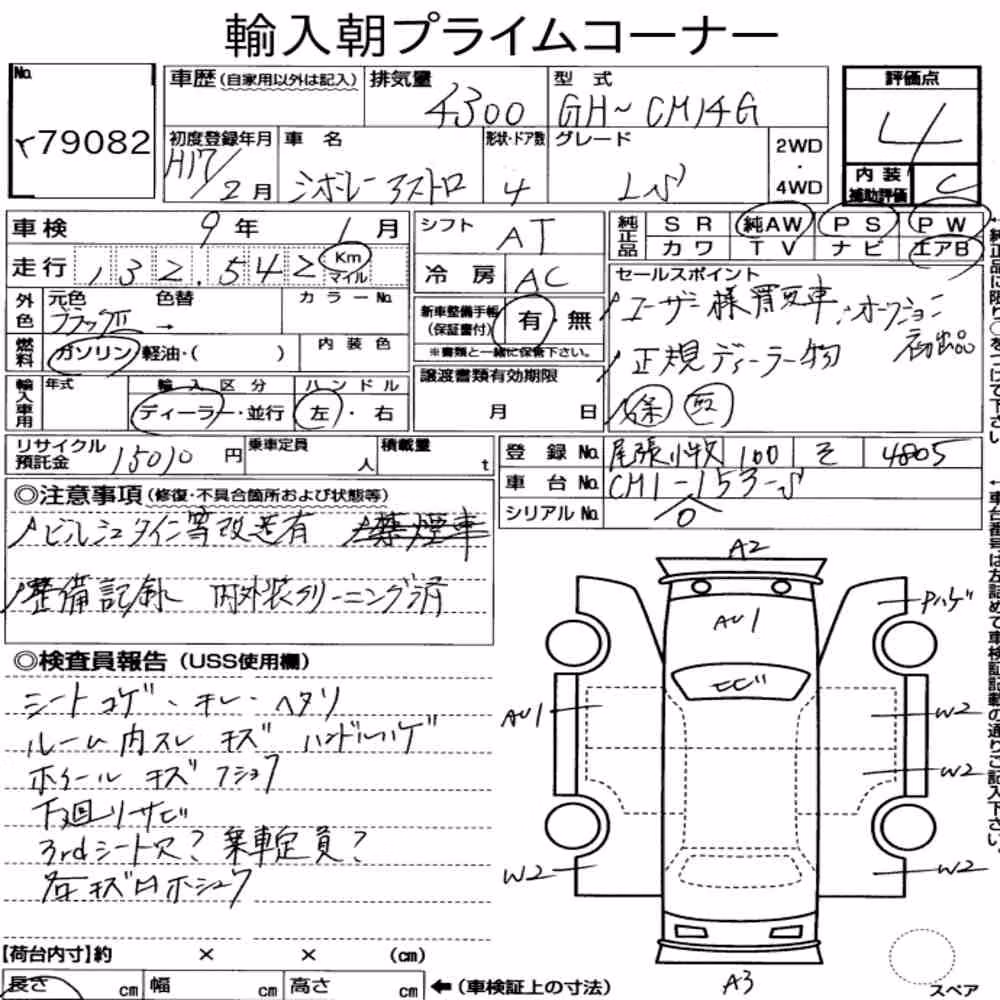 輸入朝プライムコーナー
No. 79082
車歴(自家用以外は記入) 排気量 4300 型式 GH~CM14G
初度登録年月 H17/2月 車名 シボレーアストロ 形状・ドア数 4 グレード LS 2WD・4WD
評価点 4
内装補助評価 C
車検 9年 1月
走行 132,542 Km マイル
外色 元色 ブラックⅡ 色替 → カラーNo.
燃料 ガソリン・軽油・( ) 内装色
輸入車用 年式 輸入区分 ディーラー・並行 ハンドル 左・右
シフト AT
冷房 AC
新車整備手帳(保証書付) 有・無
※書類と一緒に保管下さい。
譲渡書類有効期限 月 日
純正品 SR 純AW PS PW
カワ TV ナビ エアB
セールスポイント
ユーザー様買取車、オークション初出品
正規ディーラー物
保 取
←純正品に限り○をつけて下さい
リサイクル預託金 15010円 乗車定員 人 積載量 t
登録No. 尾張小牧 100 そ 4805
車台No. CM1-153-S
シリアルNo. 0
◎注意事項(修復・不具合箇所および状態等)
ビルシュタイン等改造有 禁煙車
整備記録 内外装クリーニング済
←車台番号は左詰めで車検証記載の通りご記入下さい。
◎検査員報告(USS使用欄)
シートコゲ、キレ・ヘタリ
ルーム内スレ キズ ハンドルハゲ
ホイール キズ フショク
下回リサビ
3rdシート穴?乗車定員?
各キズ凹ホシュウ
A2
AU1
Pハゲ
トビ
AU1
W2
W2
W2
W2
A3
スペア
【荷台内寸】約 × × (cm)
長さ cm 幅 cm 高さ cm ←(車検証上の寸法)